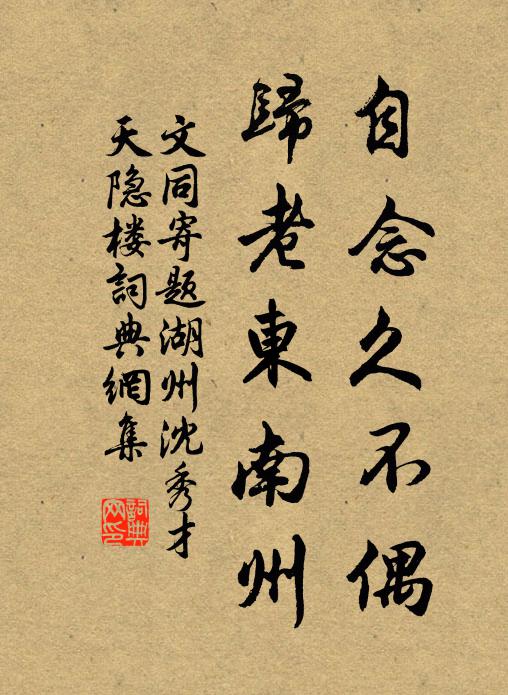 自念久不偶
歸老東南州
文同寄题湖州沈秀才
天隐楼詞典網集
詞典网印